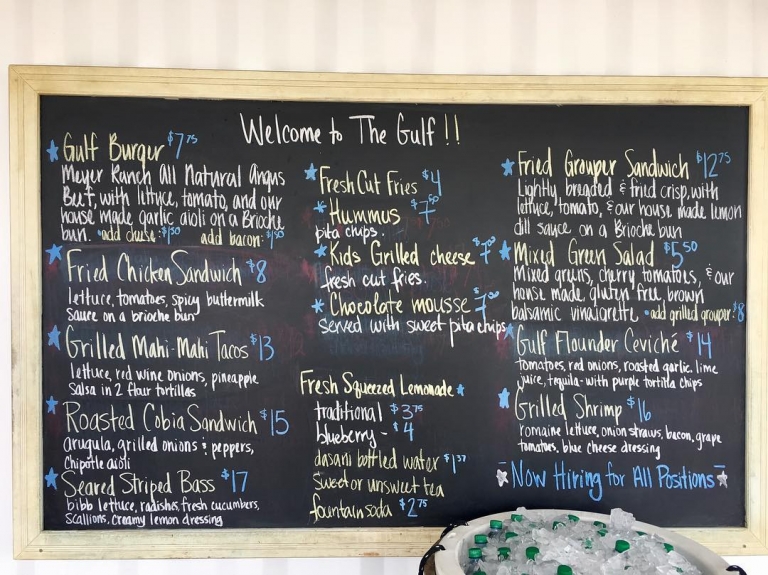 Welcome to The Gulf!!
Gulf Burger $7.75
Meyer Ranch All Natural Angus
Beef, with lettuce, tomato, and our
house made garlic aioli on a Brioche
bun. •add cheese: $1.50 add bacon: $1.50
Fried Chicken Sandwich $8
lettuce, tomatoes, spicy buttermilk
sauce on a brioche bun
Grilled Mahi-Mahi Tacos $13
lettuce, red wine onions, pineapple
salsa in 2 flour tortillas
Roasted Cobia Sandwich $15
arugula, grilled onions & peppers,
chipotle aioli
Seared Striped Bass $17
bibb lettuce, radishes, fresh cucumbers,
scallions, creamy lemon dressing
Fresh Cut Fries $4
Hummus $7.50
pita chips.
Kids Grilled cheese $7.00
fresh cut fries.
Chocolate mousse $7.00
served with sweet pita chips
Fresh Squeezed Lemonade
traditional $3.75
blueberry - $4
dasani bottled water $1.37
sweet or unsweet tea
fountain soda $2.75
Fried Grouper Sandwich $12.75
Lightly breaded & fried crisp, with
lettuce, tomato, & our house made lemon
dill sauce on a Brioche bun
Mixed Green Salad $5.50
Mixed greens, cherry tomatoes, & our
house made gluten free, brown
balsamic vinaigrette •add grilled grouper $8
Gulf Flounder Ceviché $14
tomatoes, red onions, roasted garlic, lime
juice, tequila - with purple tortilla chips
Grilled Shrimp $16
romaine lettuce, onion straws, bacon, grape
tomatoes, blue cheese dressing
Now Hiring for All Positions